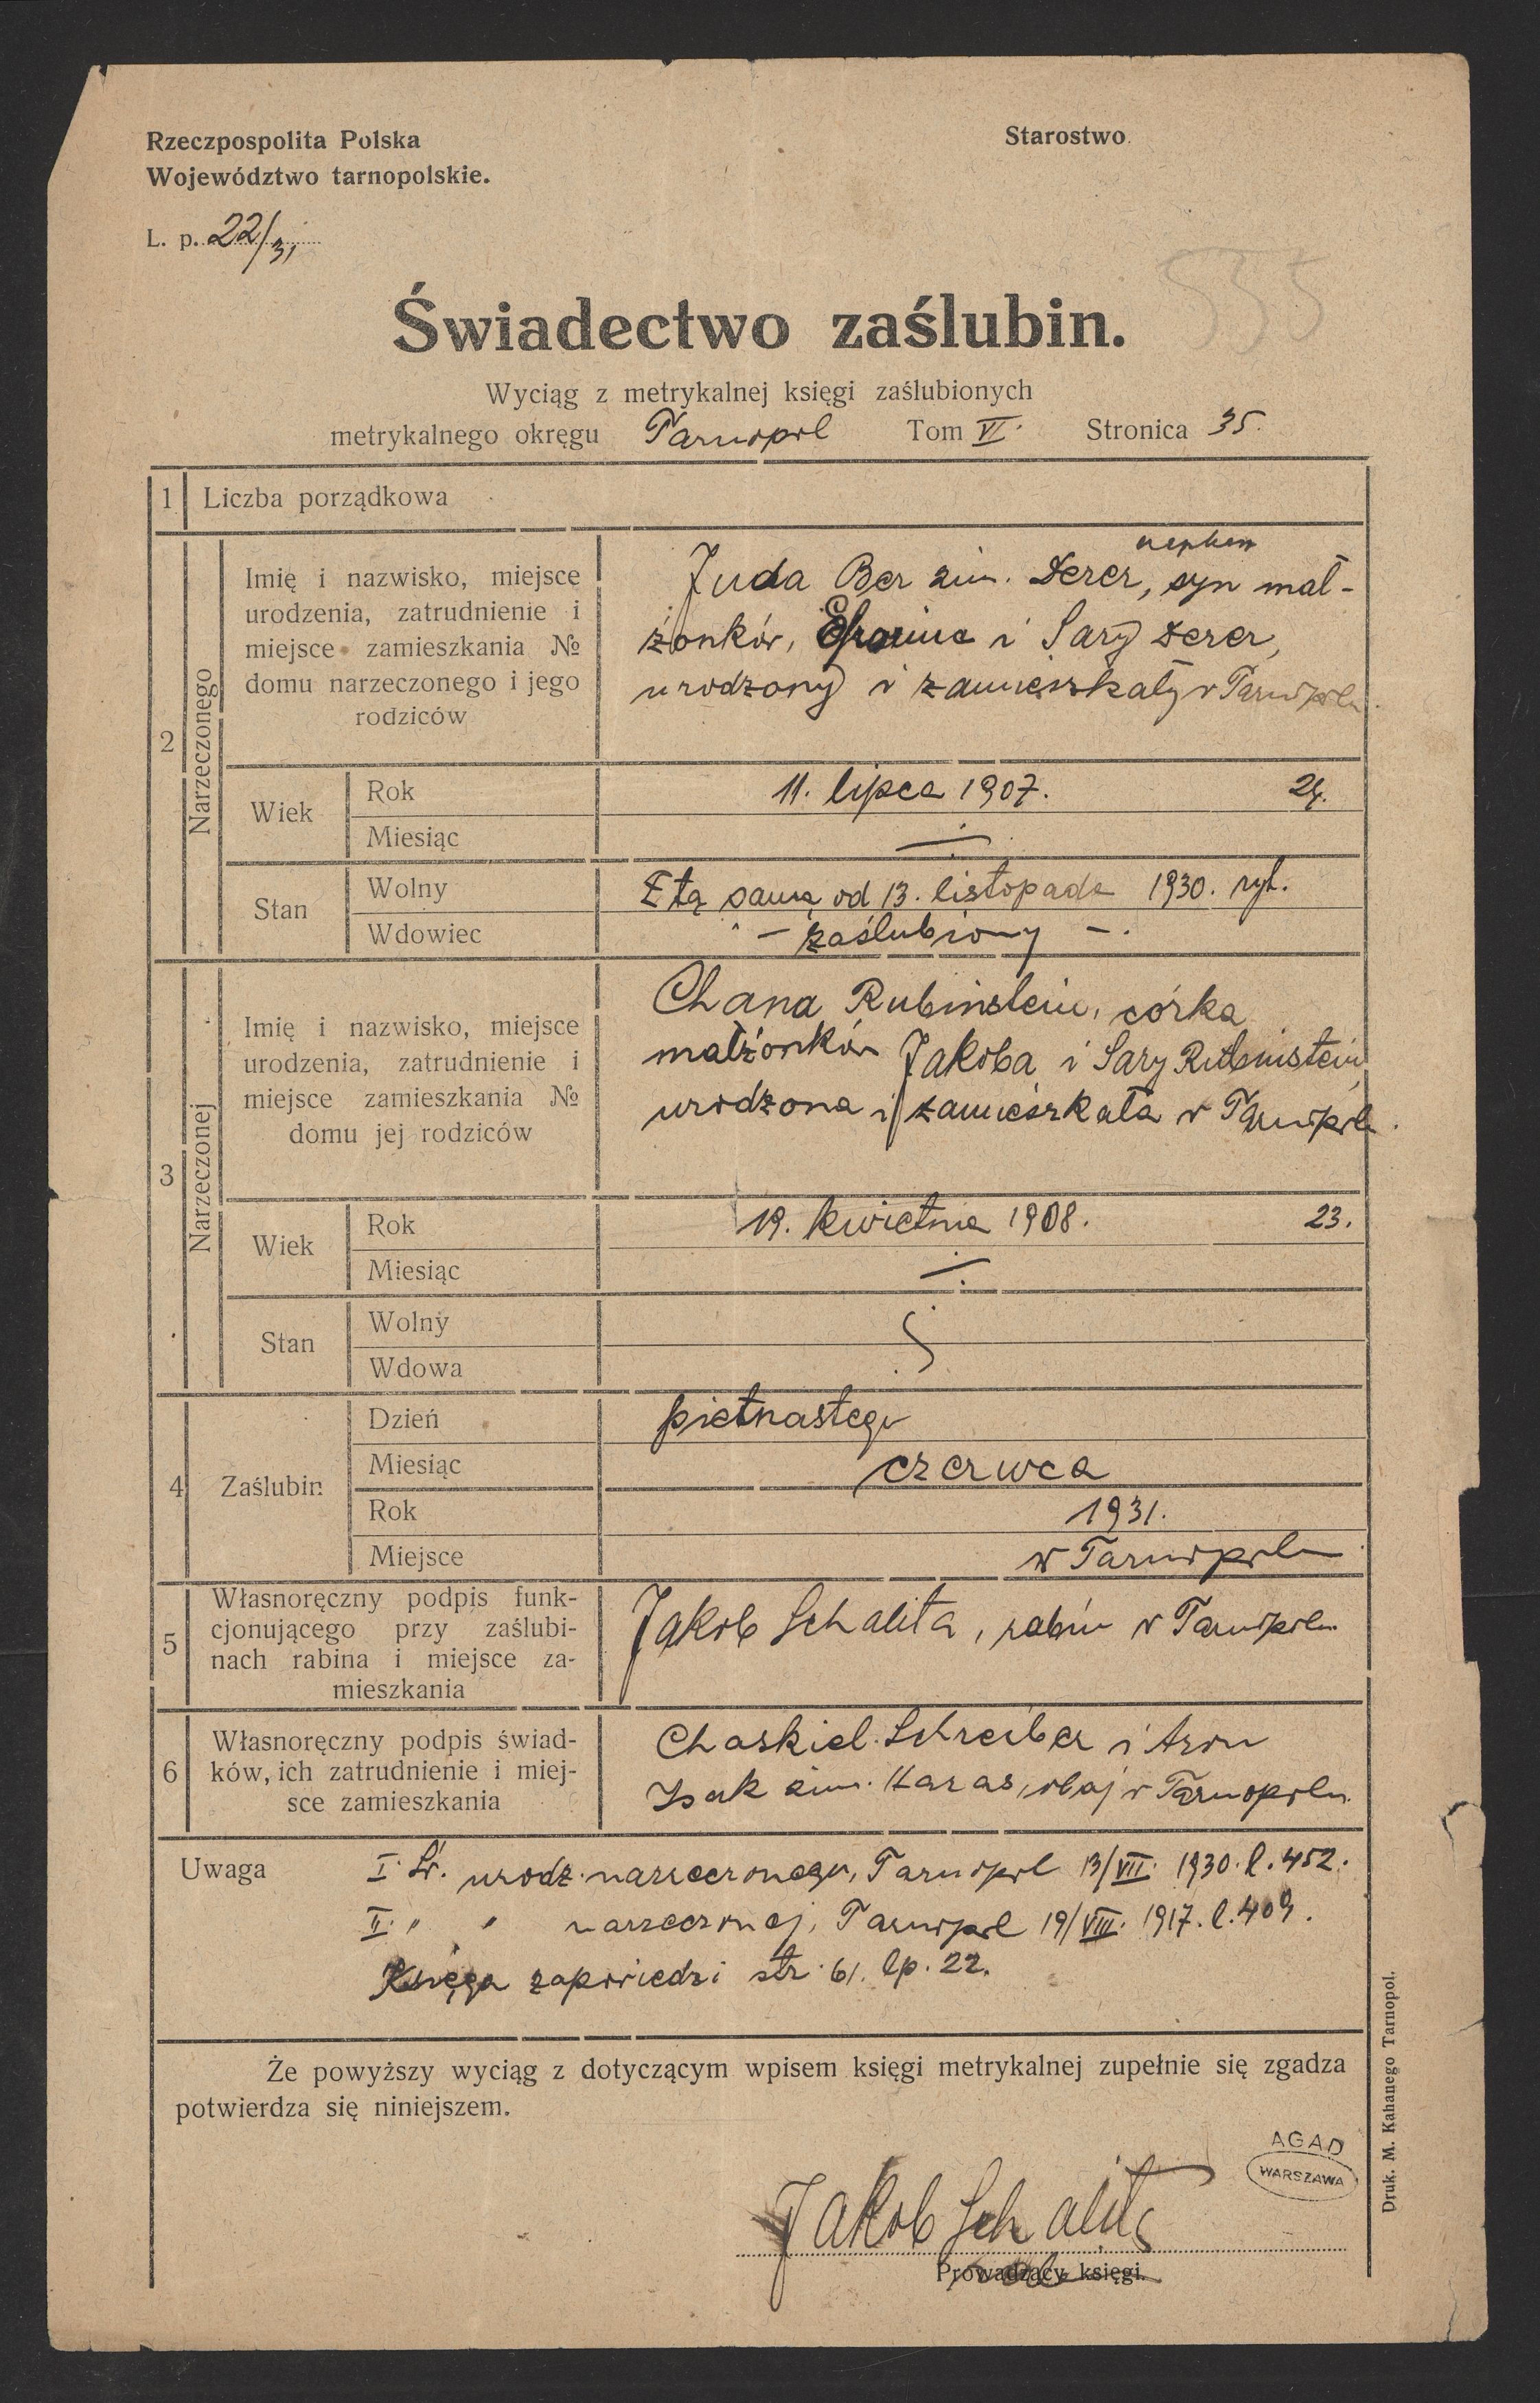 Rzeczpospolita Polska
Województwo tarnopolskie.
Starostwo
L. p. 22/31
535
Świadectwo zaślubin.
Wyciąg z metrykalnej księgi zaślubionych
metrykalnego okręgu Tarnopol Tom VI. Stronica 35.
1 Liczba porządkowa
2 Narzeczonego
Imię i nazwisko, miejsce
urodzenia, zatrudnienie i
miejsce zamieszkania №
domu narzeczonego i jego
rodziców
Juda Ber zim. Derer, syn mał-
żonków, Efroima i Sary Derer,
urodzony i zamieszkały w Tarnopolu.
Wiek Rok 11. lipca 1907. 24.
Miesiąc
Stan Wolny Z tą samą od 13. listopada 1930. ryt.
Wdowiec - zaślubiony -.
3 Narzeczonej
Imię i nazwisko, miejsce
urodzenia, zatrudnienie i
miejsce zamieszkania №
domu jej rodziców
Chana Rubinstein, córka
małżonków Jakóba i Sary Rubinstein,
urodzona i zamieszkała w Tarnopolu.
Wiek Rok 19. kwietnia 1908. 23.
Miesiąc
Stan Wolny
Wdowa
4 Zaślubin
Dzień piętnastego
Miesiąc czerwca
Rok 1931.
Miejsce w Tarnopolu
5 Własnoręczny podpis funk-
cjonującego przy zaślubi-
nach rabina i miejsce za-
mieszkania
Jakób Schalita, rabin w Tarnopolu
6 Własnoręczny podpis świad-
ków, ich zatrudnienie i miej-
sce zamieszkania
Chaskiel Schreiber i Aron
Izak zim. Haras, obaj w Tarnopolu.
Uwaga
I. Św. urodz. narzeczonego, Tarnopol 13/VII. 1930. l. 452.
II. " " narzeczonej, Tarnopol 19/VIII. 1917. l. 409.
Księga zapowiedzi str. 61. lp. 22.
Że powyższy wyciąg z dotyczącym wpisem księgi metrykalnej zupełnie się zgadza
potwierdza się niniejszem.
AGAD
WARSZAWA
Jakób Schalita
Prowadzący księgi.
Druk. M. Kahanego Tarnopol.